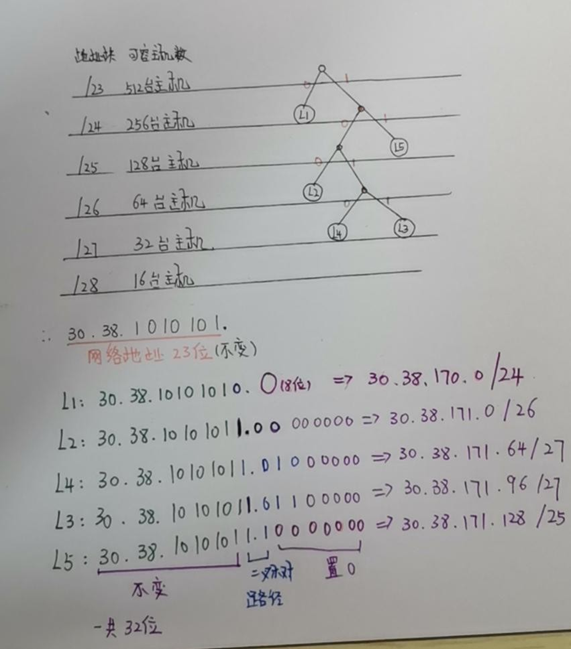 地址块 可容主机数
/23 512台主机
/24 256台主机
/25 128台主机
/26 64台主机
/27 32台主机.
/28 16台主机
0 1
L1
0 1
L5
0 1
L2
0 1
L4 L3
∴ 30.38.1010101.
网络地址 23位(不变)
L1: 30.38.10101010.0(8位) => 30.38.170.0/24
L2: 30.38.10101011.00 000000 => 30.38.171.0/26
L4: 30.38.10101011.01000000 => 30.38.171.64/27
L3: 30.38.10101011.01100000 => 30.38.171.96/27
L5: 30.38.10101011.10000000 => 30.38.171.128/25
不变
路径
置0
一共32位